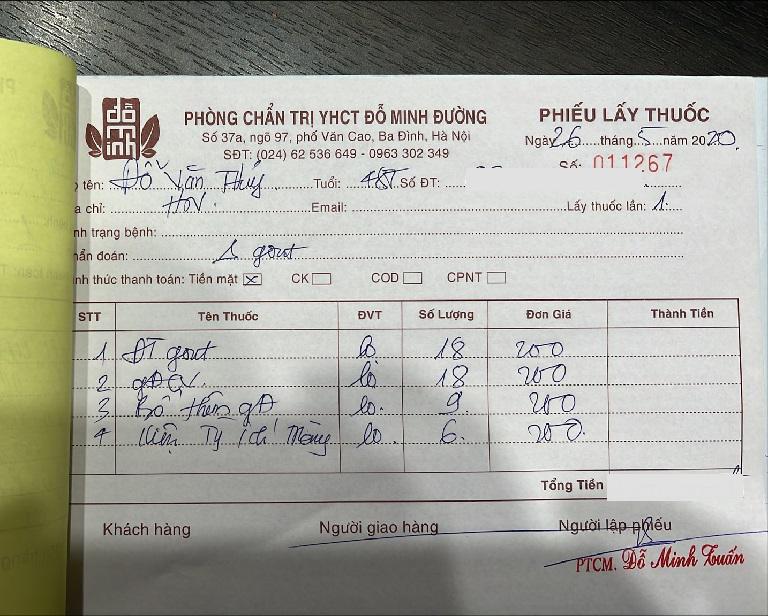 đỗ minh
PHÒNG CHẨN TRỊ YHCT ĐỖ MINH ĐƯỜNG
Số 37a, ngõ 97, phố Văn Cao, Ba Đình, Hà Nội
SĐT: (024) 62 536 649 - 0963 302 349
PHIẾU LẤY THUỐC
Ngày 26 tháng 5 năm 2020
Số: 011267
tên: Đỗ Văn Thuý Tuổi: 48T Số ĐT:
a chỉ: Email: Lấy thuốc lần: 1
nh trạng bệnh:
ẩn đoán: gout
nh thức thanh toán: Tiền mặt CK COD CPNT
STT Tên Thuốc ĐVT Số Lượng Đơn Giá Thành Tiền
1 ĐT gout lo 18 200
2 lo 18 200
3 Bổ thận lo. 9 200
4 Kiện Tỳ ích Tràng lo. 6. 200.
Tổng Tiền
Khách hàng Người giao hàng Người lập phiếu
PTCM. Đỗ Minh Tuấn